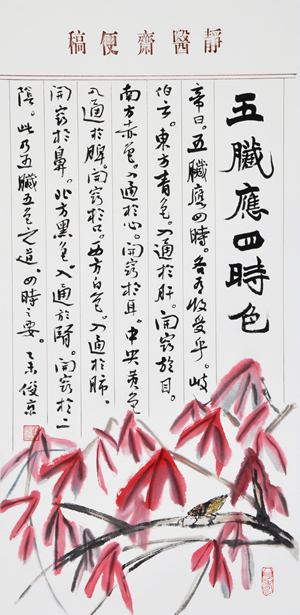 靜醫齋便稿
五臟應四時色
帝曰。五臟應四時。各有收受乎。岐
伯云。東方青色。入通於肝。開竅於目。
南方赤色。入通於心。開竅於耳。中央黃色
入通於脾。開竅於口。西方白色。入通於肺。
開竅於鼻。北方黑色。入通於腎。開竅於二
陰。此乃五臟五色之道、四時之要。乙未俊京